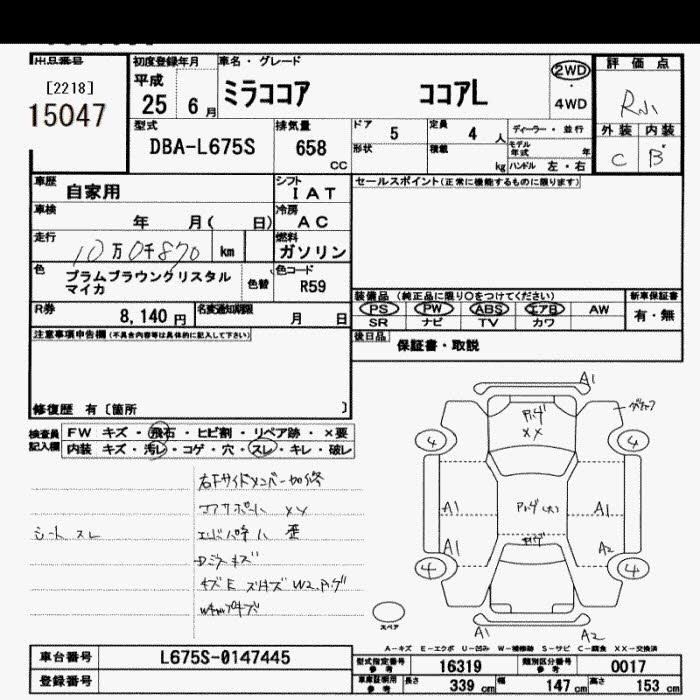 出品番号
[2218]
15047
初度登録年月
平成
25 6月
車名・グレード
ミラココア ココアL
2WD
・
4WD
評価点
外装 内装
C B
型式
DBA-L675S
排気量
658
CC
ドア 5
定員 4 人
形状
積載 kg
ディーラー・並行
モデル年式 年
ハンドル 左・右
車歴 自家用
シフト IAT
車検 年 月( 日)
冷房 AC
走行 10万0千870 km
燃料 ガソリン
色 プラムブラウンクリスタル
マイカ
色替
色コード R59
R券 8,140円
名変通知期限 月 日
セールスポイント(正常に機能するものに限ります)
装備品 (純正品に限り○をつけてください)
PS PW ABS エアB AW
SR ナビ TV カワ
新車保証書
有・無
後日品 保証書・取説
注意事項申告欄(不具合内容等は具体的に記入して下さい)
修復歴 有〔箇所 〕
検査員
記入欄
FW キズ・飛石・ヒビ割・リペア跡・×要
内装 キズ・汚レ・コゲ・穴・スレ・キレ・破レ
シート スレ
右Fサイドメンバー加修
コアサポート XX
エンドパネル 歪
Dミラーキズ
A1
4 4
XX
A1 A1
A1 A2
4 4
A1 A2
スペア
A-キズ E-エクボ U-凹み W-補修跡 S-サビ C-腐食 XX-交換済
車台番号 L675S-0147445
登録番号
型式指定番号
参考
16319
類別区分番号
参考
0017
車庫証明用
参考
長さ 339 cm 幅 147 cm 高さ 153 cm